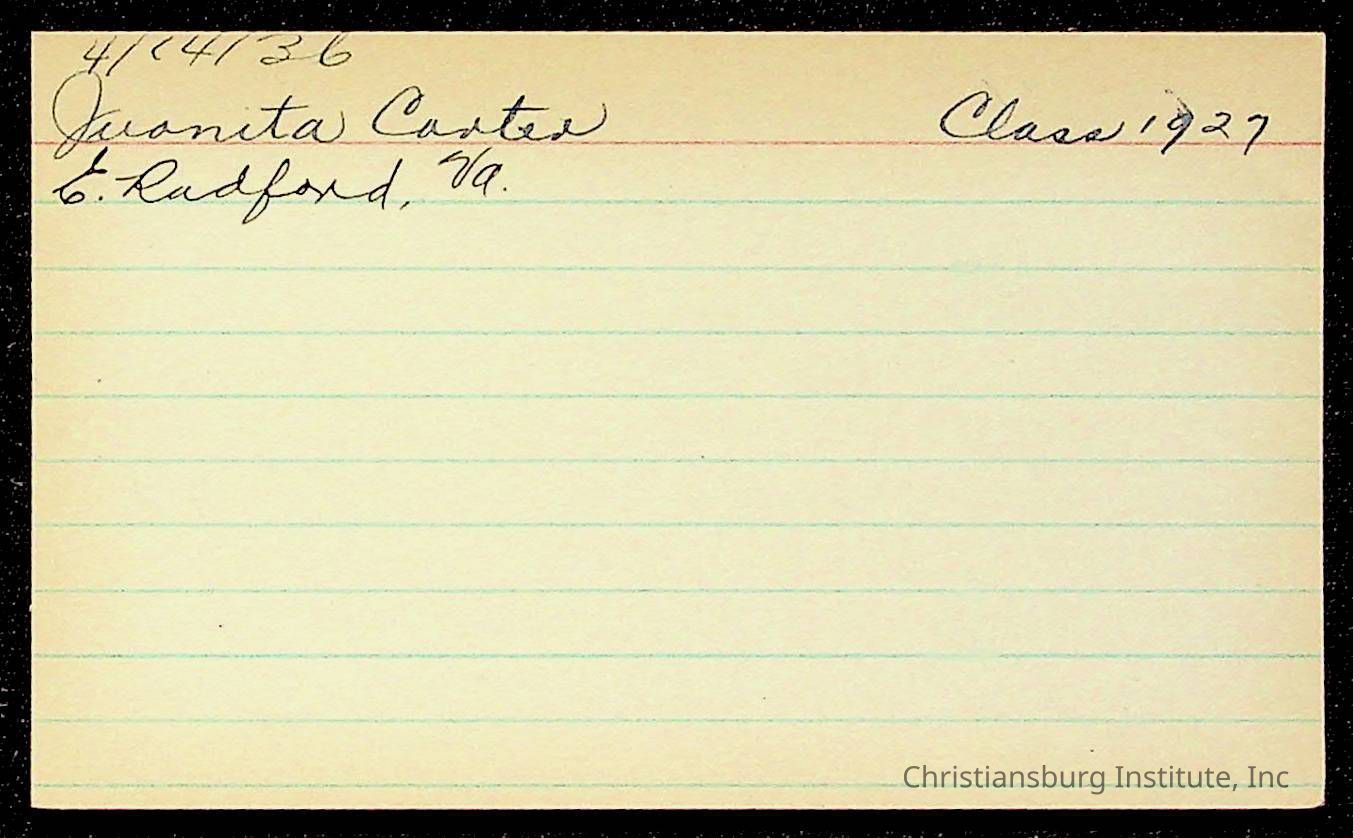 4/14/36
Juanita Carter Class 1927
E. Radford, Va.
Christiansburg Institute, Inc